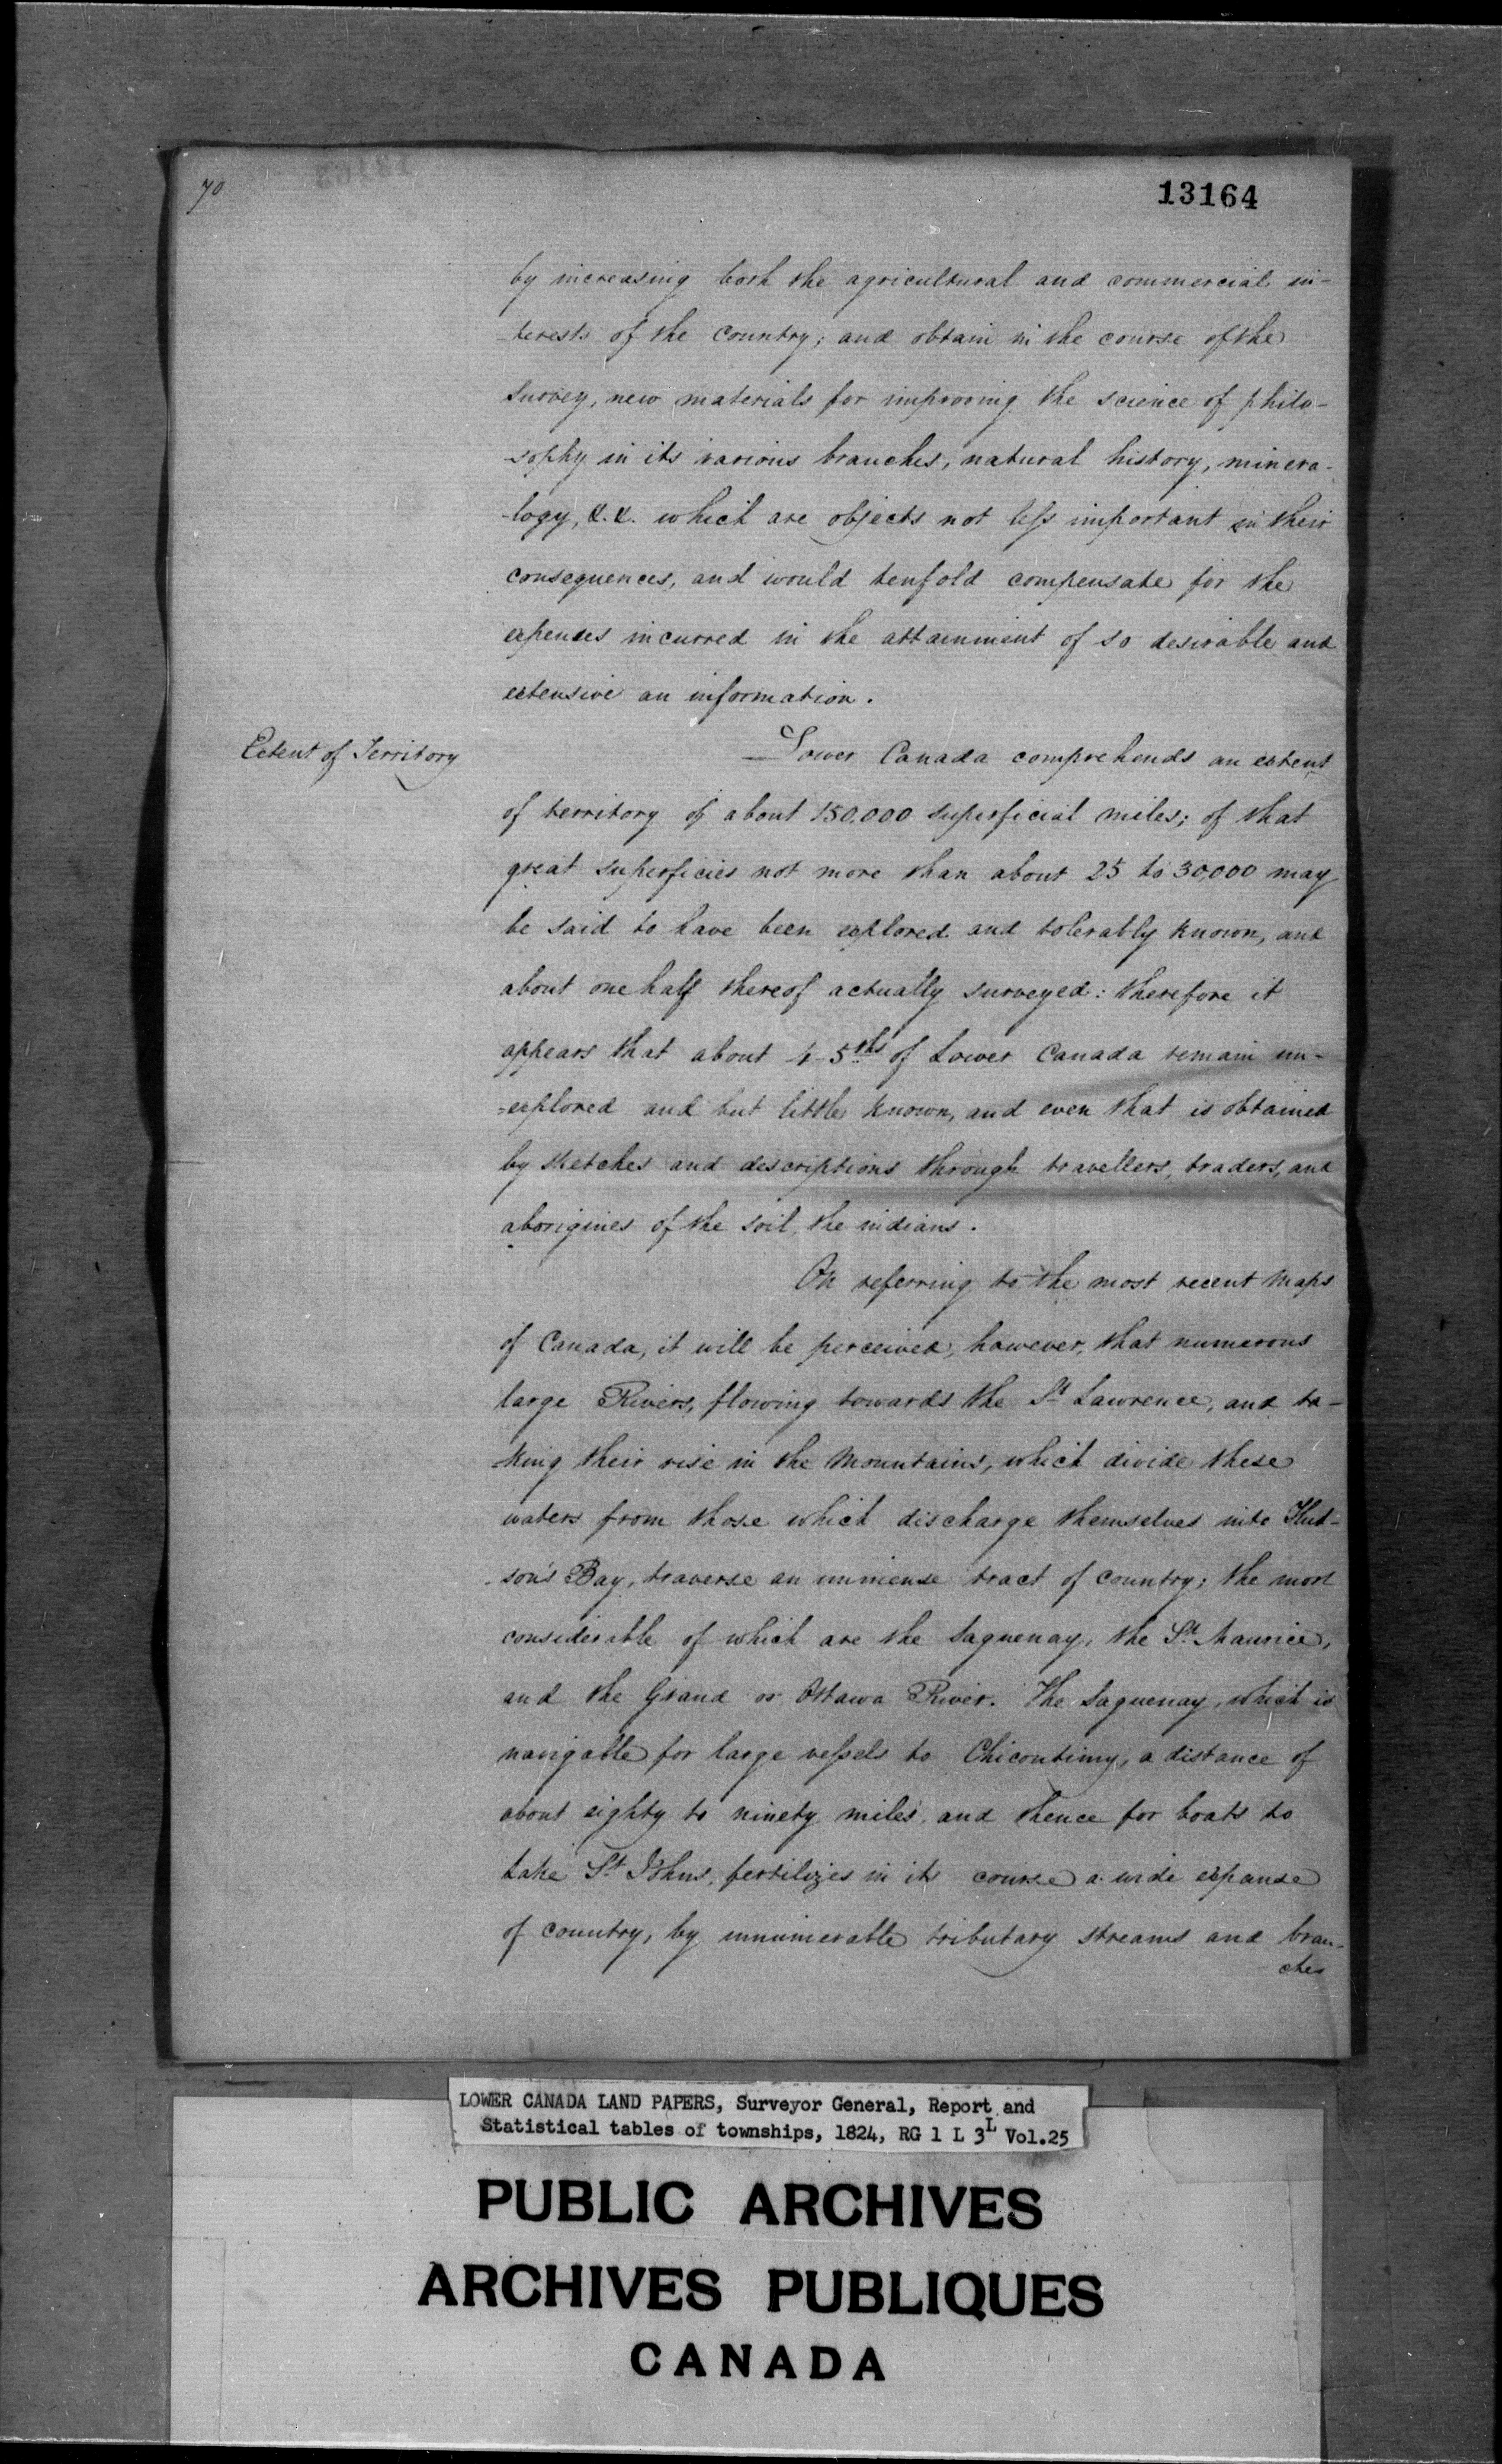 70
13164
by increasing both the agricultural and commercial in-
-terests of the Country; and obtain in the course of the
survey, new materials for improving the science of philo-
-sophy in its various branches, natural history, minera-
-logy, &. &. which are objects not less important in their
consequences, and would tenfold compensate for the
expenses incurred in the attainment of so desirable and
extensive an information.
Extent of Territory
Lower Canada comprehends an extent
of territory of about 150,000 superficial miles; of that
great superficies not more than about 25 to 30,000 may
be said to have been explored and tolerably known, and
about one half thereof actually surveyed: therefore it
appears that about 4-5ths of Lower Canada remain un-
=explored and but little known, and even that is obtained
by sketches and descriptions through travellers, traders, and
aborigines of the soil, the indians.
On referring to the most recent Maps
of Canada, it will be perceived, however, that numerous
large Rivers, flowing towards the St Lawrence, and ta-
-king their rise in the Mountains, which divide these
waters from those which discharge themselves into Hud-
-son's Bay, traverse an immense tract of country; the most
considerable of which are the Saguenay, the St. Maurice,
and the Grand or Ottawa River. The Saguenay, which is
navigable for large vessels to Chicoutimy, a distance of
about eighty to ninety miles, and thence for boats to
Lake St Johns, fertilizes in its course a wide expanse
of country, by innumerable tributary streams and bran-
ches
LOWER CANADA LAND PAPERS, Surveyor General, Report and
Statistical tables of townships, 1824, RG 1 L 3L Vol.25
PUBLIC ARCHIVES
ARCHIVES PUBLIQUES
CANADA